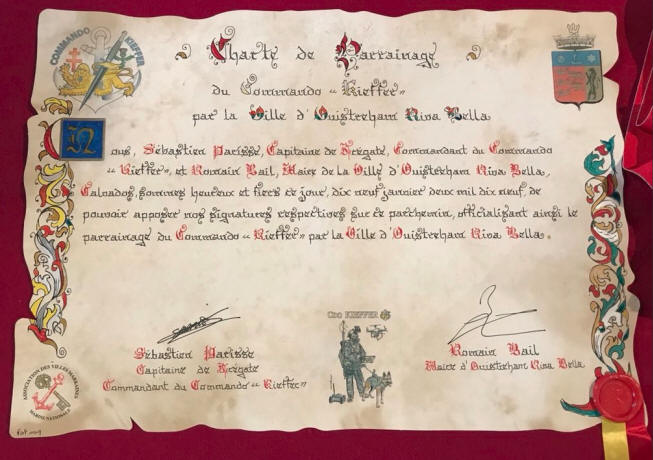 COMMANDO KIEFFER
Charte de Parrainage
du Commando « Kieffer »
par la Ville d'Ouistreham Riva Bella
Nous, Sébastien Parisse, Capitaine de Frégate, Commandant du Commando
« Kieffer », et Romain Bail, Maire de la Ville d'Ouistreham Riva Bella,
Calvados, sommes heureux et fiers ce jour, dix neuf janvier deux mil dix neuf, de
pouvoir apposer nos signatures respectives sur ce parchemin, officialisant ainsi le
parrainage du Commando « Kieffer » par la Ville d'Ouistreham Riva Bella.
CDO KIEFFER
Sébastien Parisse
Capitaine de Frégate
Commandant du Commando « Kieffer »
Romain Bail
Maire d'Ouistreham Riva Bella
ASSOCIATION DES VILLES MARRAINES
MARINE NATIONALE